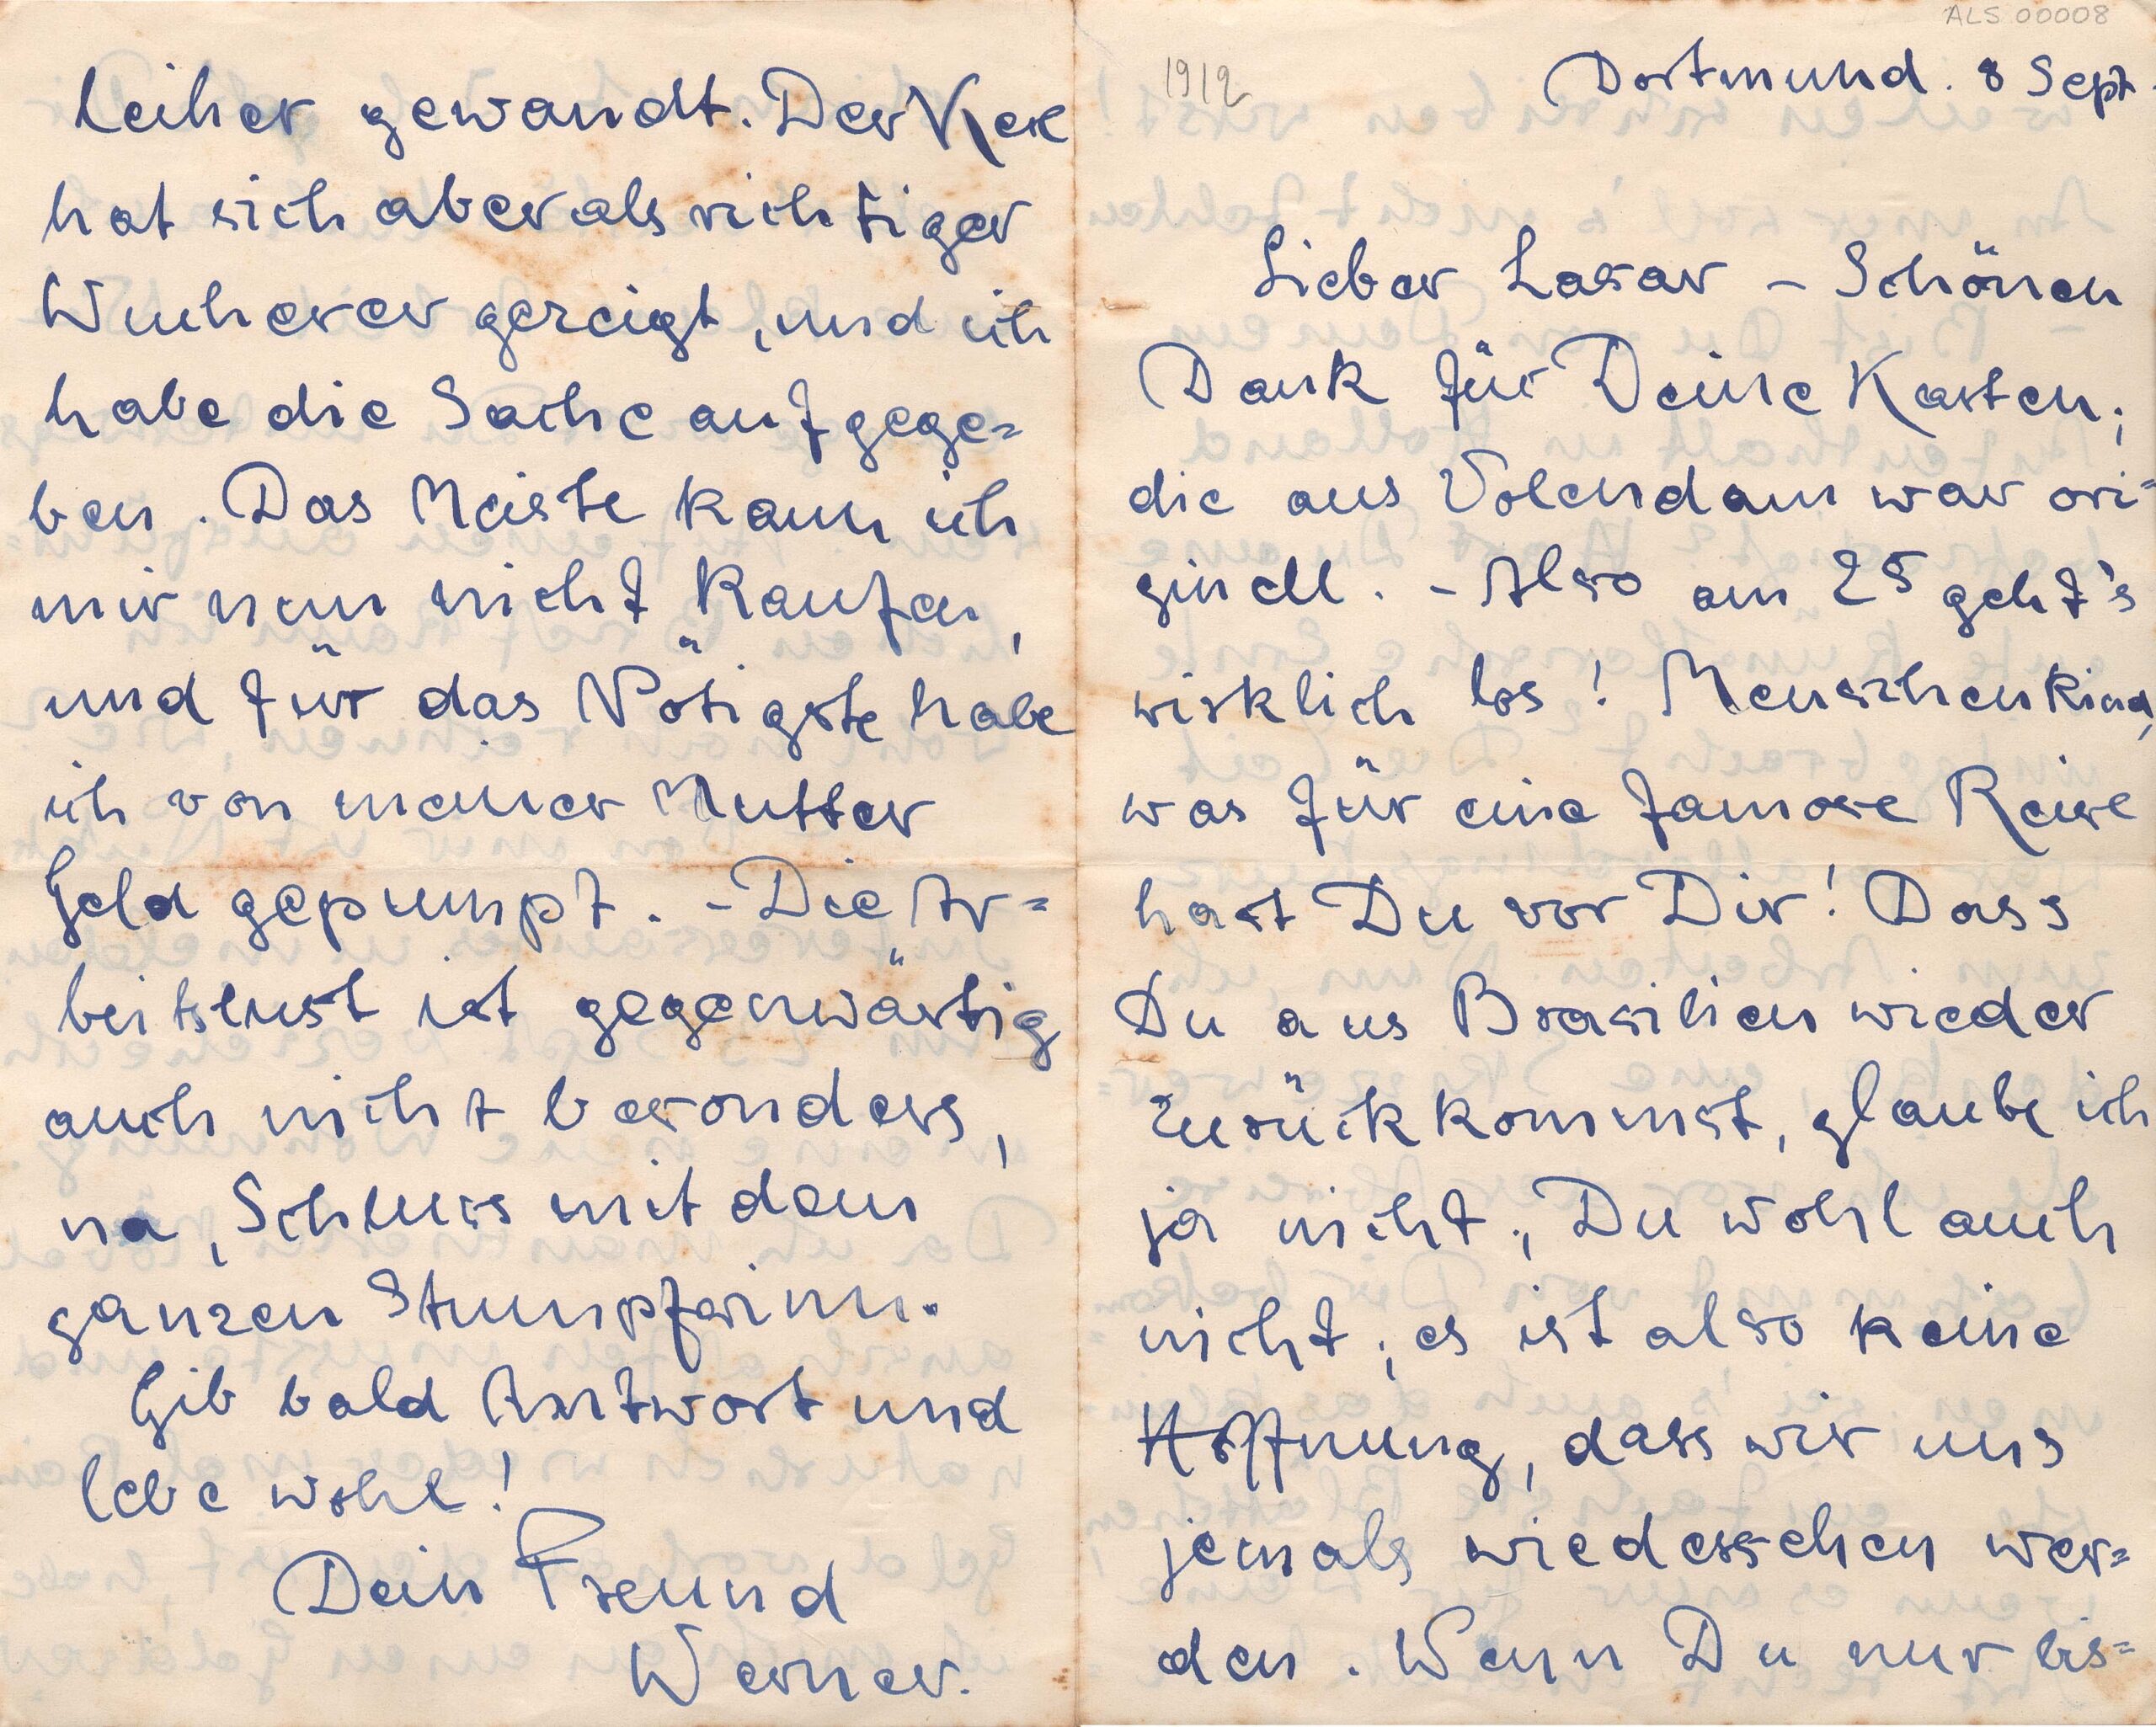 ALS 00008
1912
Dortmund. 8 Sept.
Lieber Lasar – Schönen
Dank für Deine Karten;
die aus Volendam war ori=
ginell. – Also am 25 geht's
wirklich los! Menschenkind,
was für eine famose Reise
hast Du vor Dir! Dass
Du aus Brasilien wieder
zurückkommst, glaube ich
ja nicht; Du wohl auch
nicht; es ist also keine
Hoffnung, dass wir uns
jemals wiedersehen wer=
den. Wenn Du nur bis=
leiher gewandt. Der Kerl
hat sich aber als richtiger
Wucherer gezeigt, und ich
habe die Sache aufgege=
ben. Das Meiste kann ich
mir nun nicht kaufen,
und für das Nötigste habe
ich von meiner Mutter
Geld gepumpt. – Die Ar=
beitslust ist gegenwärtig
auch nicht besonders,
na, Schluss mit dem
ganzen Stumpfsinn.
Gib bald Antwort und
lebe wohl!
Dein Freund
Werner.